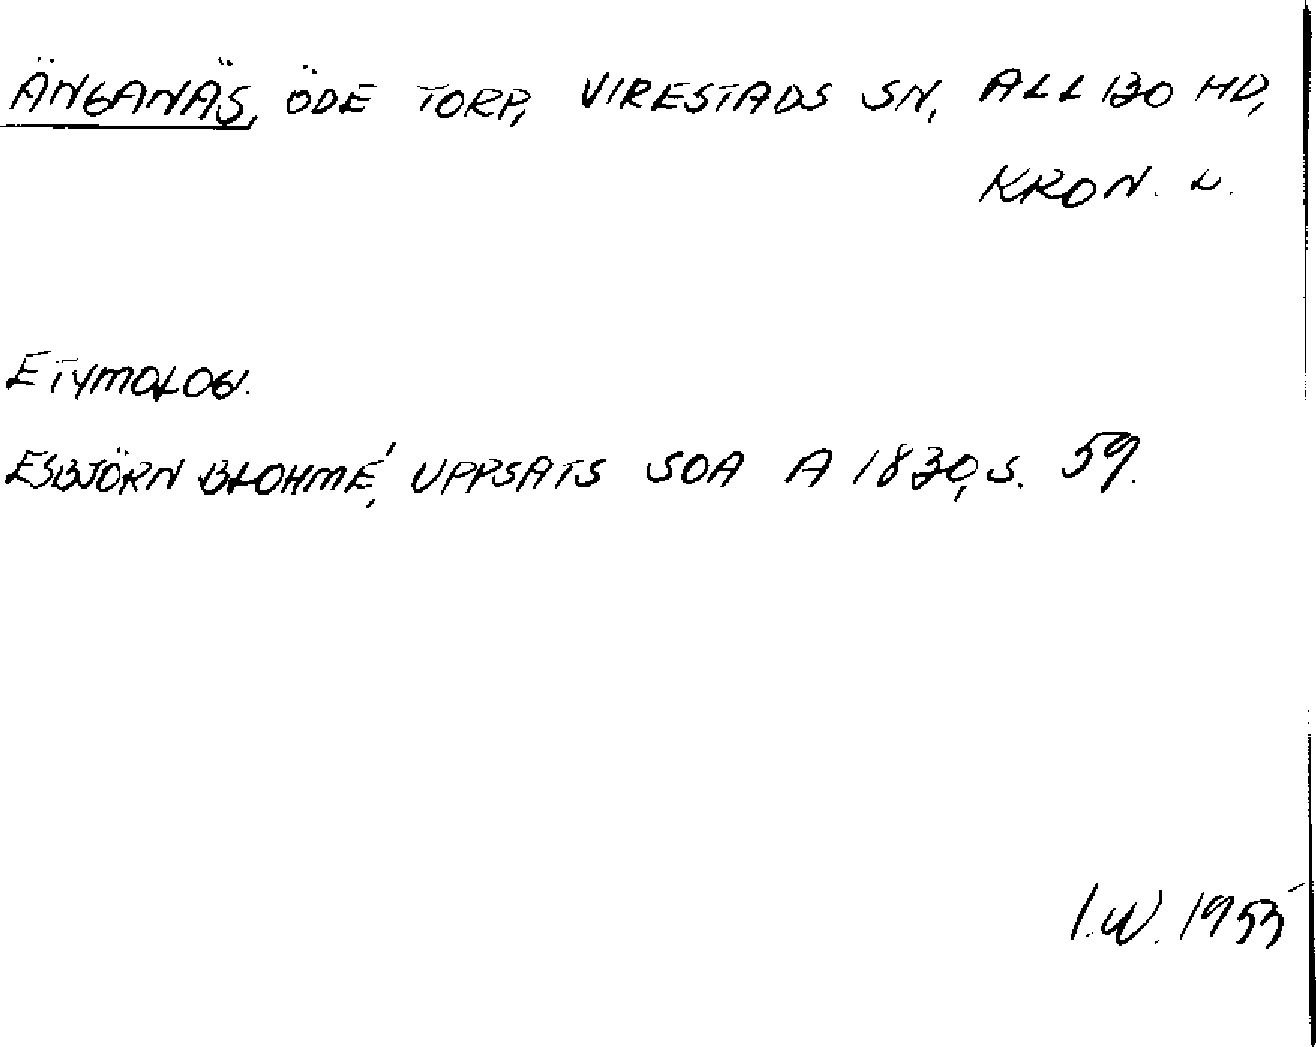 ÄNGANÄS, ÖDE TORP, VIRESTADS SN, ALLBO HD,
KRON. L.
ETYMOLOGI.
ESBJÖRN BLOHMÉ, UPPSATS SOA A 1830, S. 59.
I.W. 1955